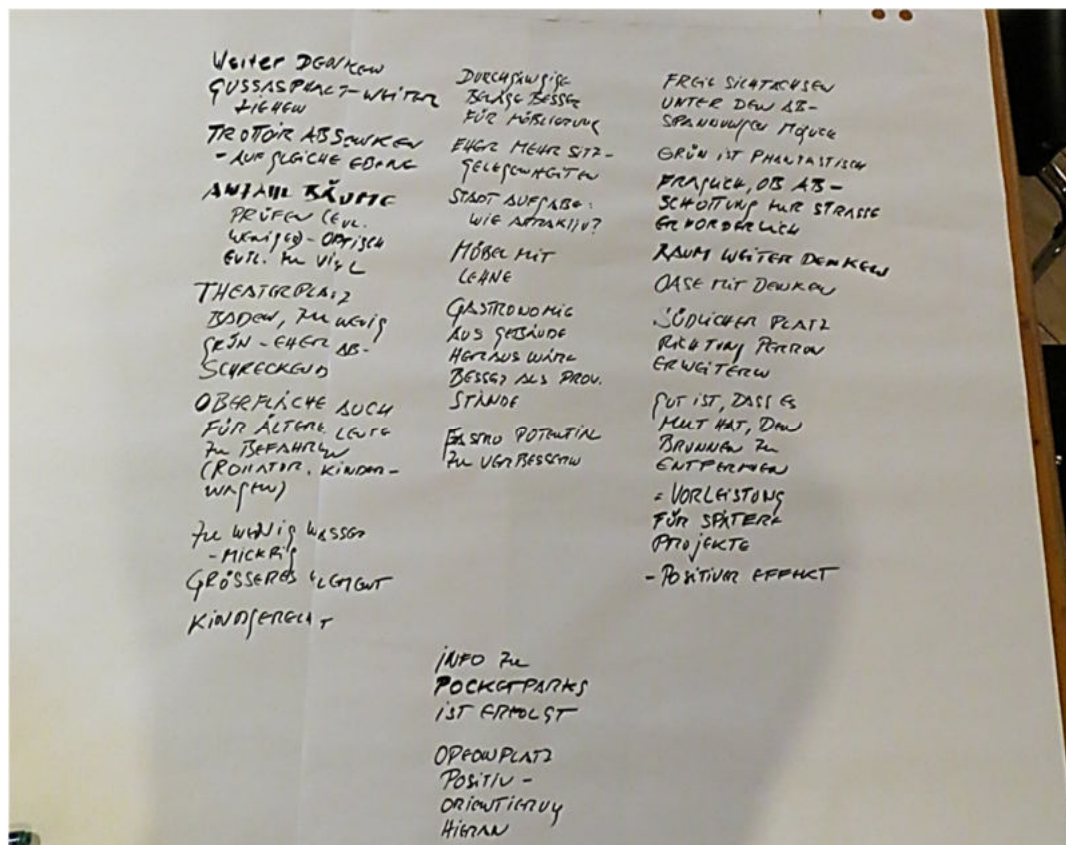 Weiter DENKEN
GUSSASPHALT-WEITER
ZIEHEN
TROTTOIR ABSENKEN
- AUF GLEICHE EBENE
ANZAHL BÄUME
PRÜFEN (EVL.
WENIGER) - OPTISCH
EVTL. ZU VIEL
THEATERPLATZ
BADEN, ZU WENIG
GRÜN - EHER AB-
SCHRECKEND
OBERFLÄCHE AUCH
FÜR ÄLTERE LEUTE
ZU BEFAHREN
(ROLLATOR, KINDER-
WAGEN)
ZU WENIG WASSER
- MICKRIG
GRÖSSERES ELEMENT
KINDGERECHT
DURCHGÄNGIGE
BELÄGE BESSER
FÜR MÖBLIERUNG
EHER MEHR SITZ-
GELEGENHEITEN
STADT AUFGABE:
WIE ATTRAKTIV?
MÖBEL MIT
LEHNE
GASTRONOMIE
AUS GEBÄUDE
HERAUS WÄRE
BESSER ALS PROV.
STÄNDE
GASTRO POTENTIAL
ZU VERBESSERN
FREIE SICHTACHSEN
UNTER DEN AB-
SPANNUNGEN MÖGLICH
GRÜN IST PHANTASTISCH
FRAGLICH, OB AB-
SCHOTTUNG ZUR STRASSE
ERFORDERLICH
RAUM WEITER DENKEN
OASE MIT DENKEN
SÜDLICHER PLATZ
RICHTUNG PERRON
ERWEITERN
GUT IST, DASS ES
MUT HAT, DEN
BRUNNEN ZU
ENTFERNEN
= VORLEISTUNG
FÜR SPÄTERE
PROJEKTE
- POSITIVER EFFEKT
INFO ZU
POCKETPARKS
IST ERFOLGT
OPERNPLATZ
POSITIV -
ORIENTIERUNG
HIERAN